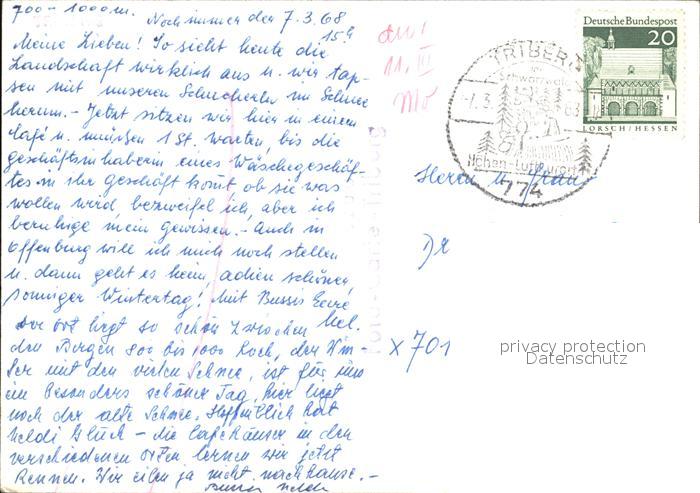 700 - 1000 m. Noch immer den 7.3.68
15h
Meine Lieben! So sieht heute die
Landschaft wirklich aus u. wir tap-
sen mit unseren im Schnee
herum. - Jetzt sitzen wir hier in einem
Café u. müßen 1 St. warten, bis die
geschäftsinhaberin eines Wäschegeschäf-
tes in ihr geschäft komt ob sie was
wollen wird, bezweifel ich, aber ich
beruhige mein Gewissen. - Auch in
Offenburg will ich mich noch stellen
u. dann geht es heim, adieu schöner,
sonniger Wintertag! Mit Bussis Eure
Mel.
Der Ort liegt so schön zwischen
den Bergen 800 bis 1000 hoch, der Win-
ter mit den vielen Schnee, ist für uns
ein besonders schöner Tag, hier liegt
noch der alte Schnee. Hoffentlich hat
Meldi Glück - die Cafehäuser in den
verschiedenen Orten lernen wir jetzt
kennen. Wir eilen ja nicht nachhause. -
11. III
Deutsche Bundespost
20
LORSCH/HESSEN
TRIBERG
im
Schwarzwald
-7.3. 68
Höhen-Luftkurort
774
Herrn u. Frau
Dr
X 701
privacy protection
Datenschutz